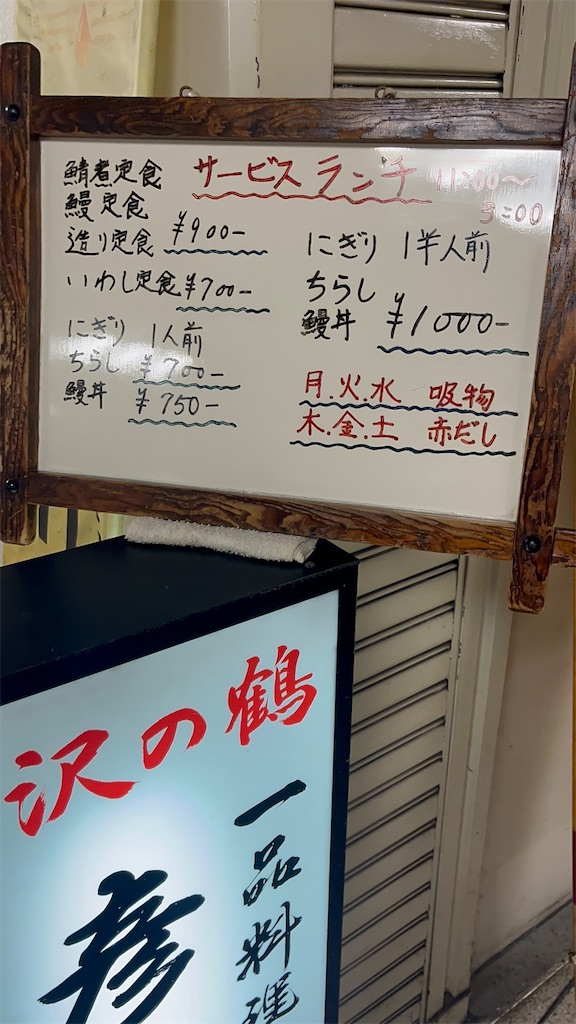 サービスランチ 11:00〜
3:00
鯖煮定食
鰻定食
造り定食 ¥900-
いわし定食 ¥700-
にぎり 1人前
ちらし ¥700-
鰻丼 ¥750-
にぎり 1半人前
ちらし
鰻丼 ¥1000-
月.火.水 吸物
木.金.土 赤だし
沢の鶴
一品料理
彦